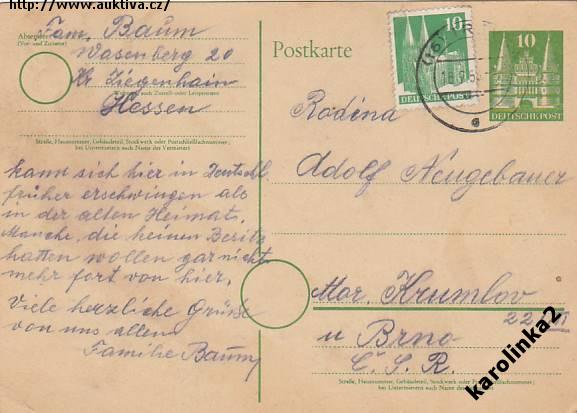 zdroj: www.auktiva.cz/
Absender:
(Vor- und Zuname)
Fam. Baum
Wasenberg 20
Kr Ziegenhain
Wohnort, auch Zustell- oder Leitpostamt
Hessen
Straße, Hausnummer, Gebäudeteil, Stockwerk oder Postschließfachnummer;
bei Untermietern auch Name des Vermieters
kann sich hier in Deutschl.
früher erschwingen als
in der alten Heimat.
Manche, die keinen Besitz
hatten wollen gar nicht
mehr fort von hier.
Viele herzliche Grüße
von uns allen
Familie Baum
Postkarte
10
DEUTSCHE POST
(16
10
DEUTSCHE POST
Rodina
Adolf Neugebauer
Mor. Krumlov
22
u Brno
Č. S. R.
Straße, Hausnummer, Gebäudeteil, Stockwerk oder Postschließfachnummer;
bei Untermietern auch Name des Vermieters
karolinka2